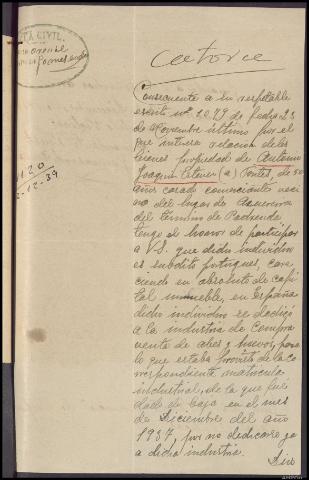 CIVIL
catorce
1120
2-12-39
Consecuente a su respetable
escrito nº 1.073 de fecha 23
de Noviembre último por el
que interesa relacion de los
bienes propiedad de Antonio
Joaquin (a) Cortes, de 50
años casado comerciante veci
no del lugar de
del termino de Padrenda
tengo el honor de participar
a V.S. que dicho individuo
es subdito portugues, care
ciendo en absoluto de capi
tal inmueble, en España
dicho individuo se dedicó
a la industria de compra
venta de aves y huevos, para
lo que estaba provisto de la co
rrespondiente matricula
industrial, de la que fue
dado de baja en el mes
de Diciembre del año
1937, por no dedicarse ya
a dicha industria.